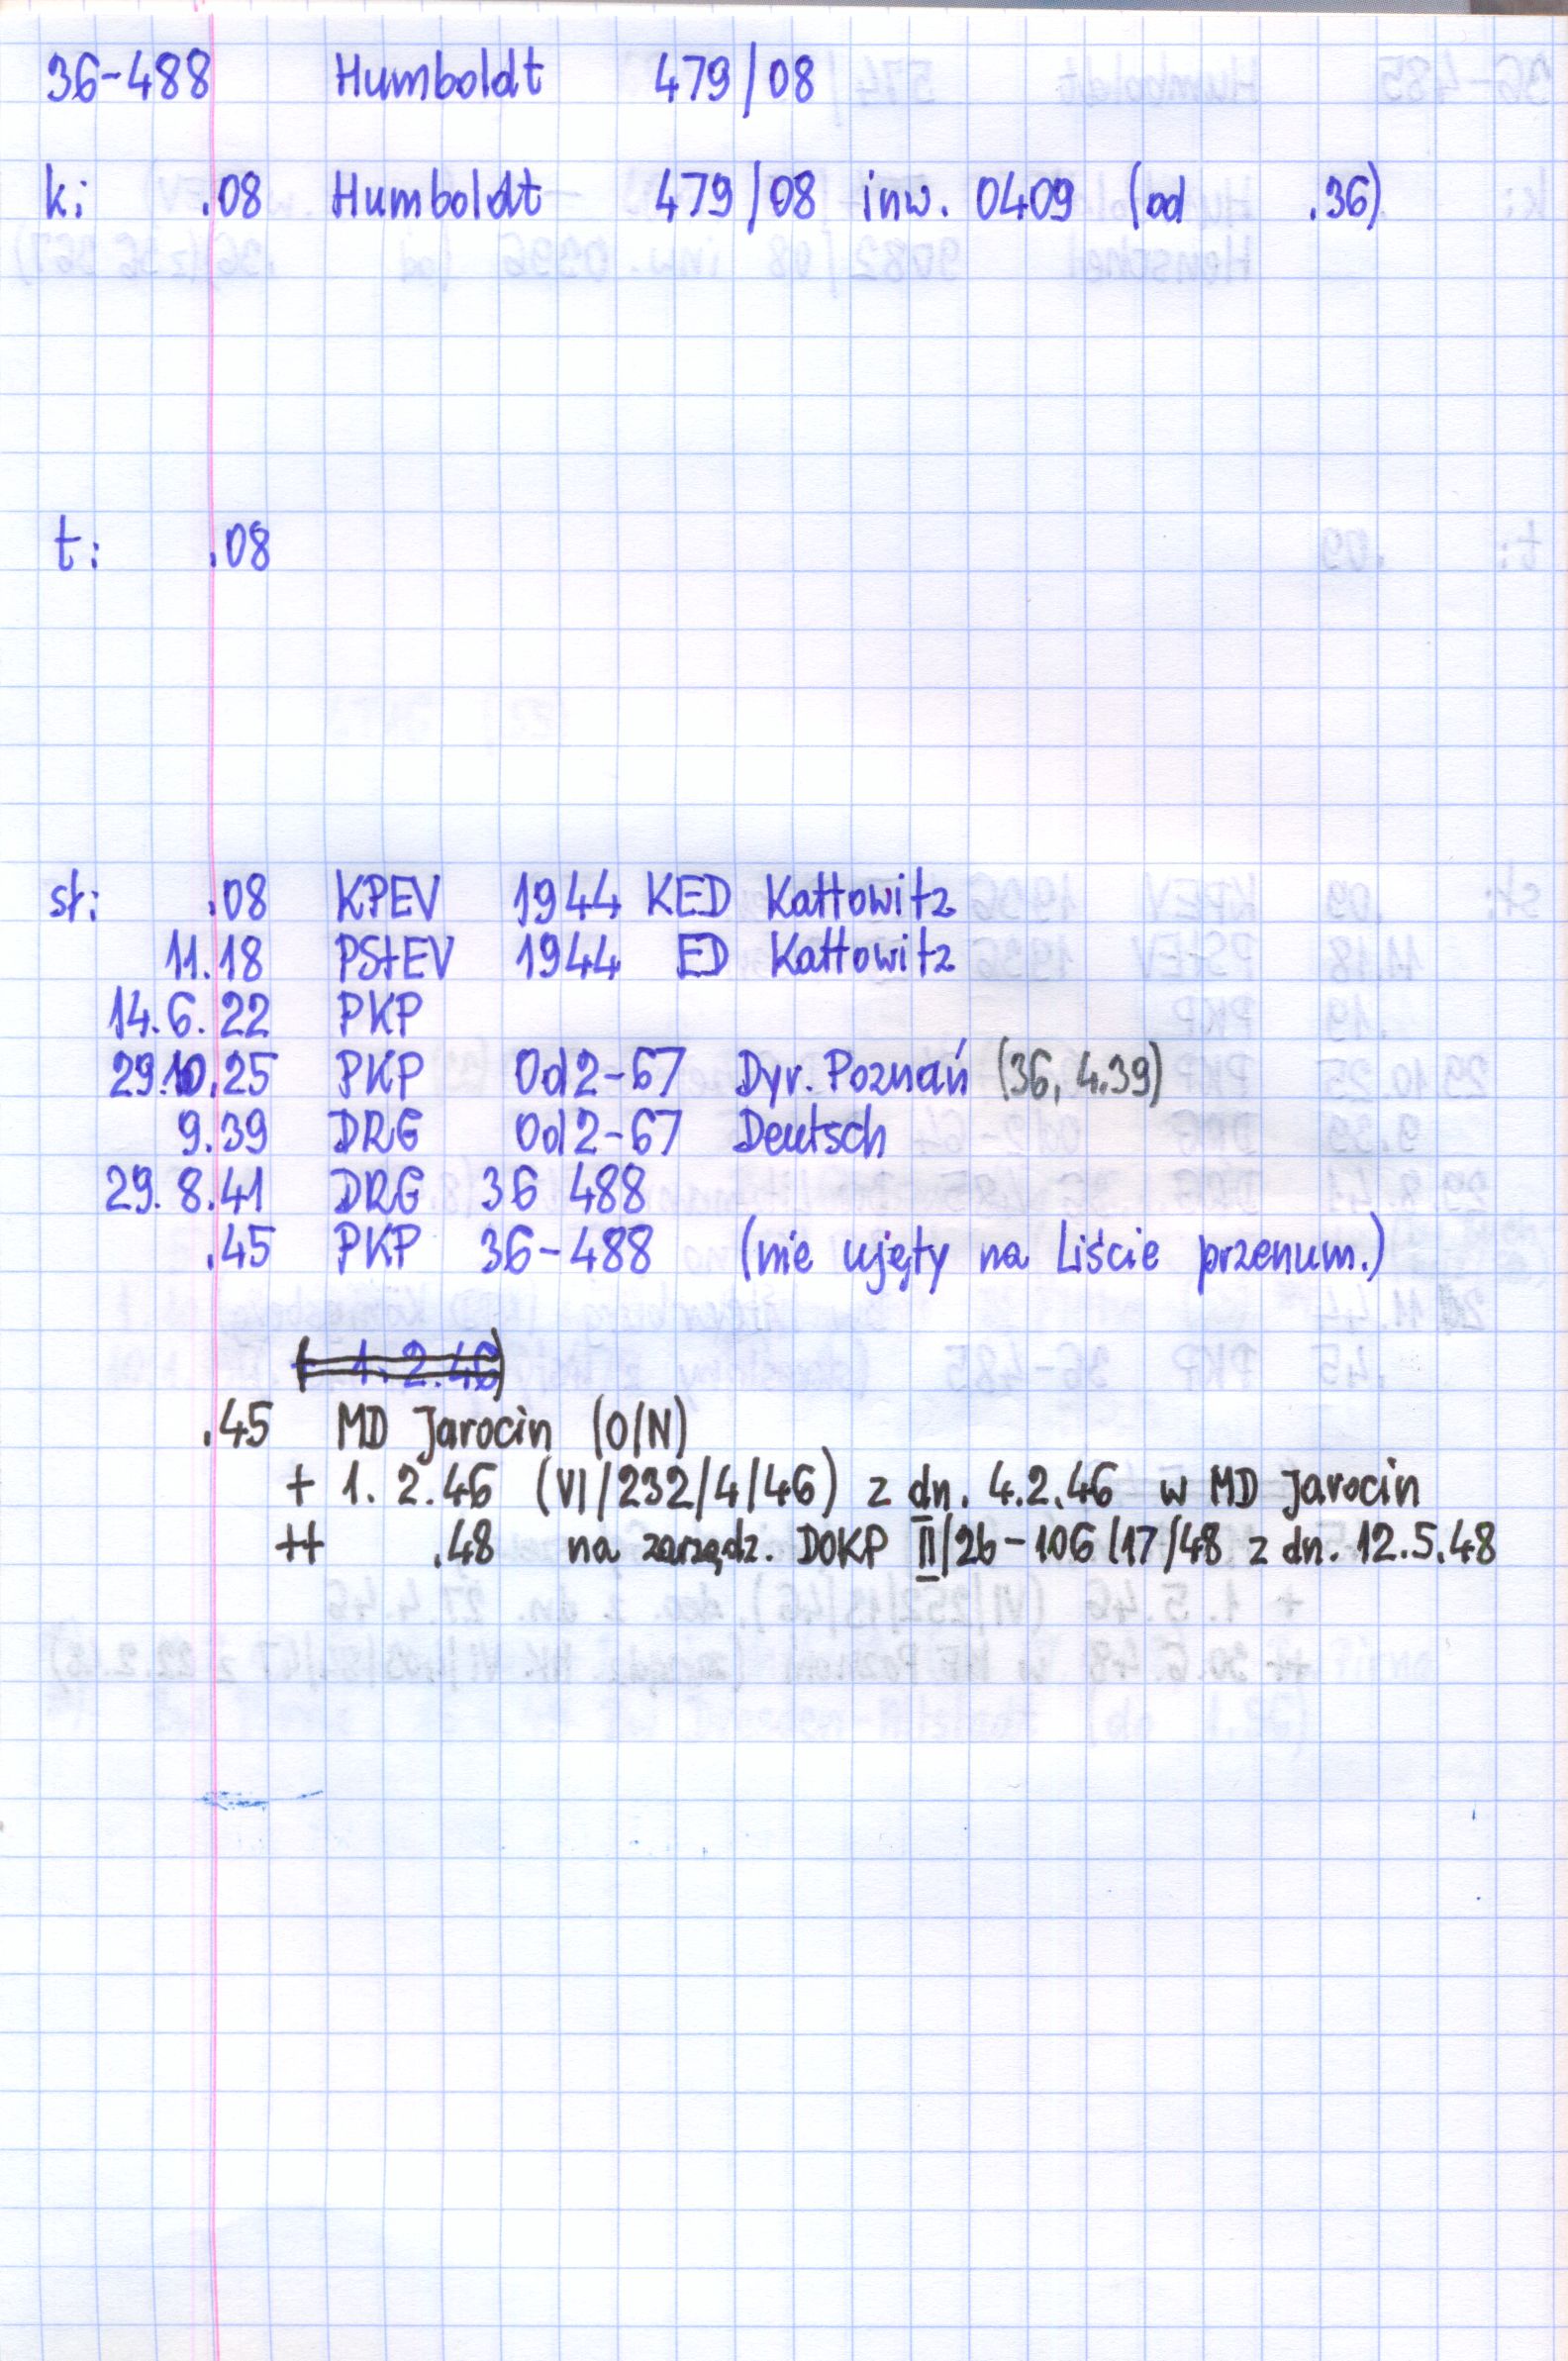 36-488 Humboldt 479/08
k: .08 Humboldt 479/08 inw. 0409 (od .36)
t: .08
st: .08 KPEV 1944 KED Kattowitz
11.18 PStEV 1944 ED Kattowitz
14.6.22 PKP
29.10.25 PKP Od2-67 Dyr. Poznań (36, 4.39)
9.39 DRG Od2-67 Deutsch
29.8.41 DRG 36 488
.45 PKP 36-488 (nie ujęty na Liście przenum.)
(+ 1.2.46)
.45 MD Jarocin (O/N)
+ 1.2.46 (VI/232/4/46) z dn. 4.2.46 w MD Jarocin
++ .48 na zarządz. DOKP II/26-106/17/48 z dn. 12.5.48